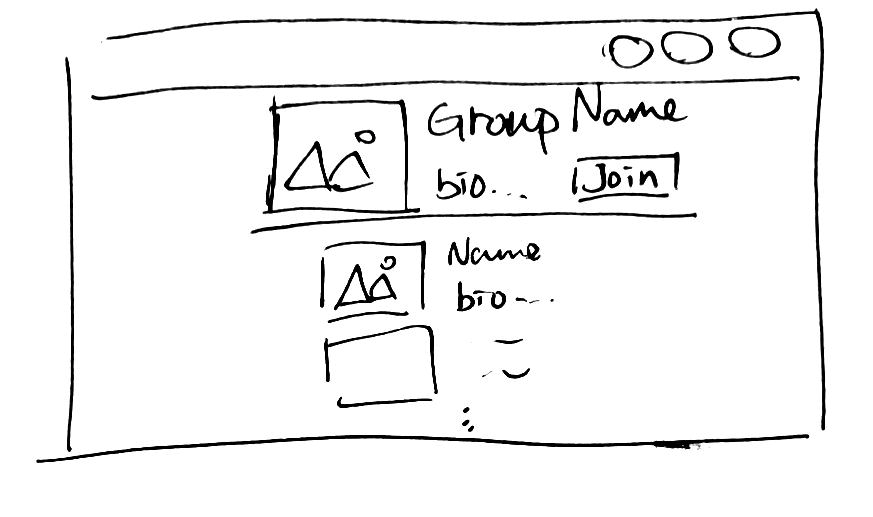 Group Name
bio... Join
Name
bio-...